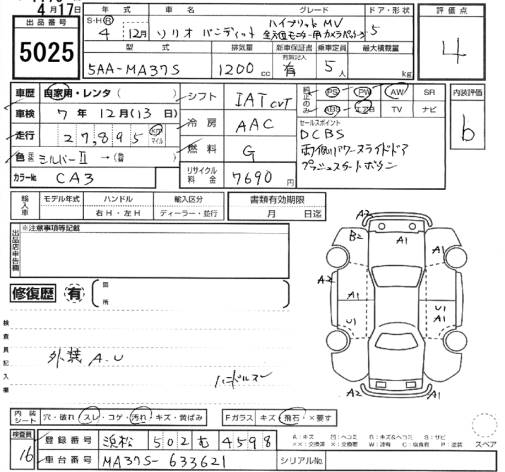 4月17日
出品番号
5025
年式 車名 グレード ドア・形状 評価点
S・H・R 4年 12月 ソリオ バンディット ハイブリッド MV 5
全方位モニター用カメラパッケージ
4
型式 排気量 新車保証書 乗車定員 最大積載量
5AA-MA37S 1200cc 有 5人 kg
車歴 自家用・レンタ( ) シフト IAT CVT PS PW AW SR 内装評価
ABS エアB TV ナビ
b
車検 7年 12月(13日) 冷房 AAC セールスポイント
DCBS
走行 27,895 km マイル
両側パワースライドドア
色 シルバーII → (替) 燃料 G
プッシュスタートボタン
カラーNo. CA3 リサイクル料金 7690円
輸入車 モデル年式 ハンドル 輸入区分 書類有効期限
右H・左H ディーラー・並行 月 日迄
出品店申告欄 ※注意事項等記載
修復歴 有 箇所
検査員記入欄
外装 A.U
ハンドルスレ
A2
B2 A1 A1
A2
A1 U1
U1 A1
A2 A1 A2
内装シート 穴・破れ スレ・コゲ・汚れ・キズ・黄ばみ Fガラス キズ・飛石・×要す
検査員 16
登録番号 浜松 502 む 4598
A:キズ U:ヘコミ B:キズ&ヘコミ S:サビ
スペア
車台番号 MA37S-633621 シリアルNo.